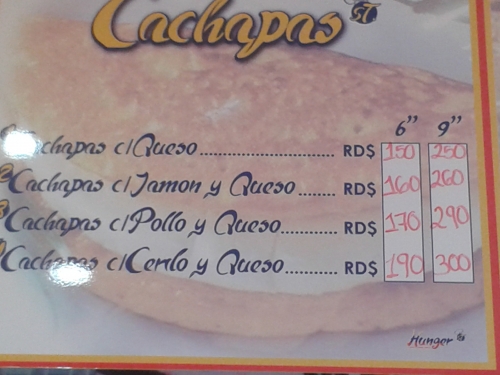 Cachapas 57
6" 9"
Cachapas c/Queso.............................. RD$ 150 250
2 Cachapas c/Jamon y Queso............ RD$ 160 260
3 Cachapas c/Pollo y Queso............... RD$ 170 290
Cachapas c/Cerdo y Queso............. RD$ 190 300
Hunger